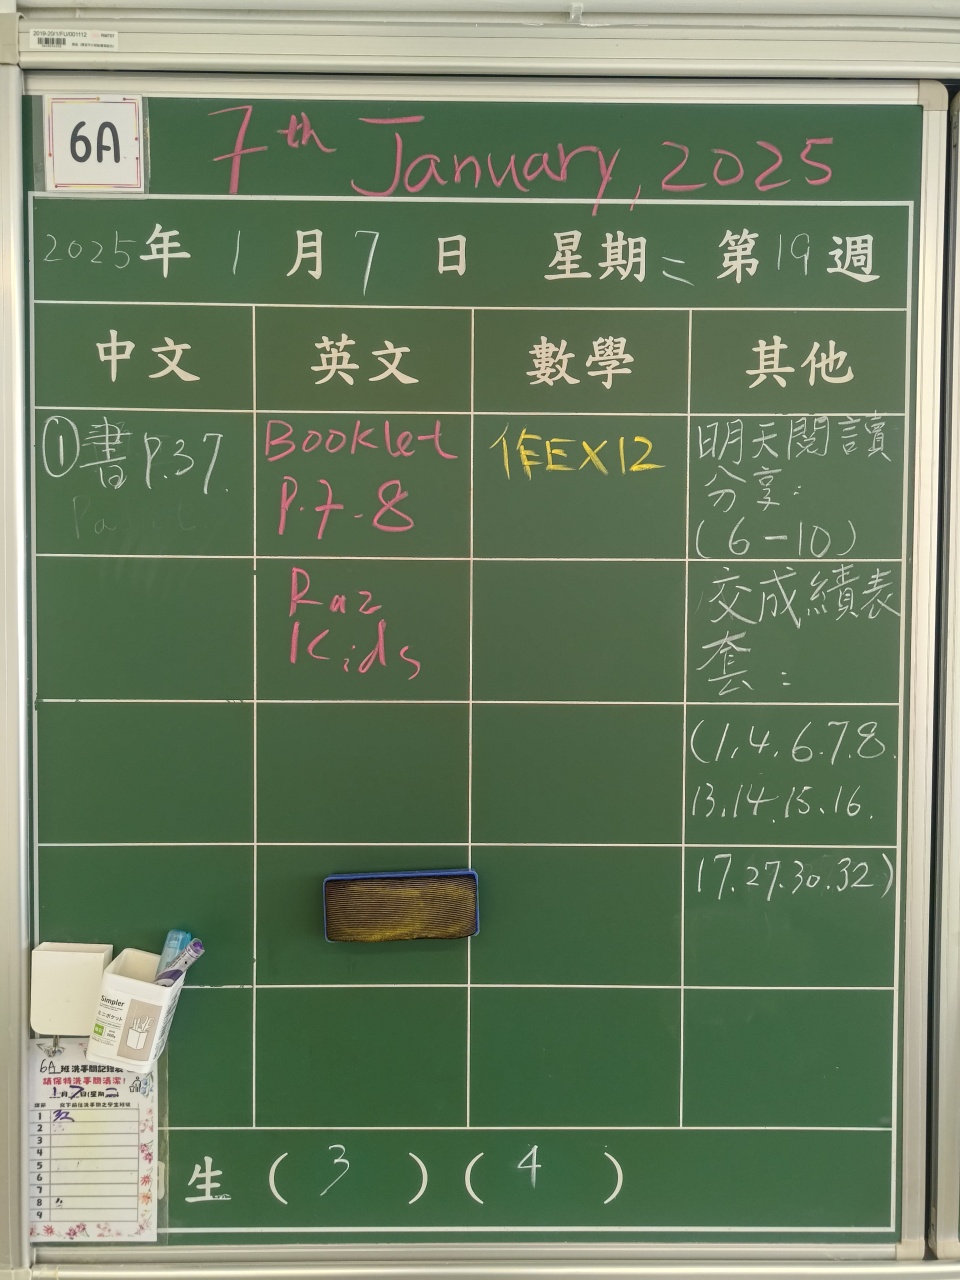 2019-20/1/FU/001112
6A
7th January, 2025
2025年 1 月 7 日 星期二 第19週
中文 英文 數學 其他
①書P.37.
Booklet
P.7-8
Raz
Kids
作EX12
明天閱讀
分享:
(6-10)
交成績表
套:
(1.4.6.7.8.
13.14.15.16.
17.27.30.32)
Simpler
ミニポケット
6A班洗手間記錄表
請保持洗手間清潔!
1月7日(星期二)
1 32
2
3
4
5
6
7
8
9
生 ( 3 ) ( 4 )